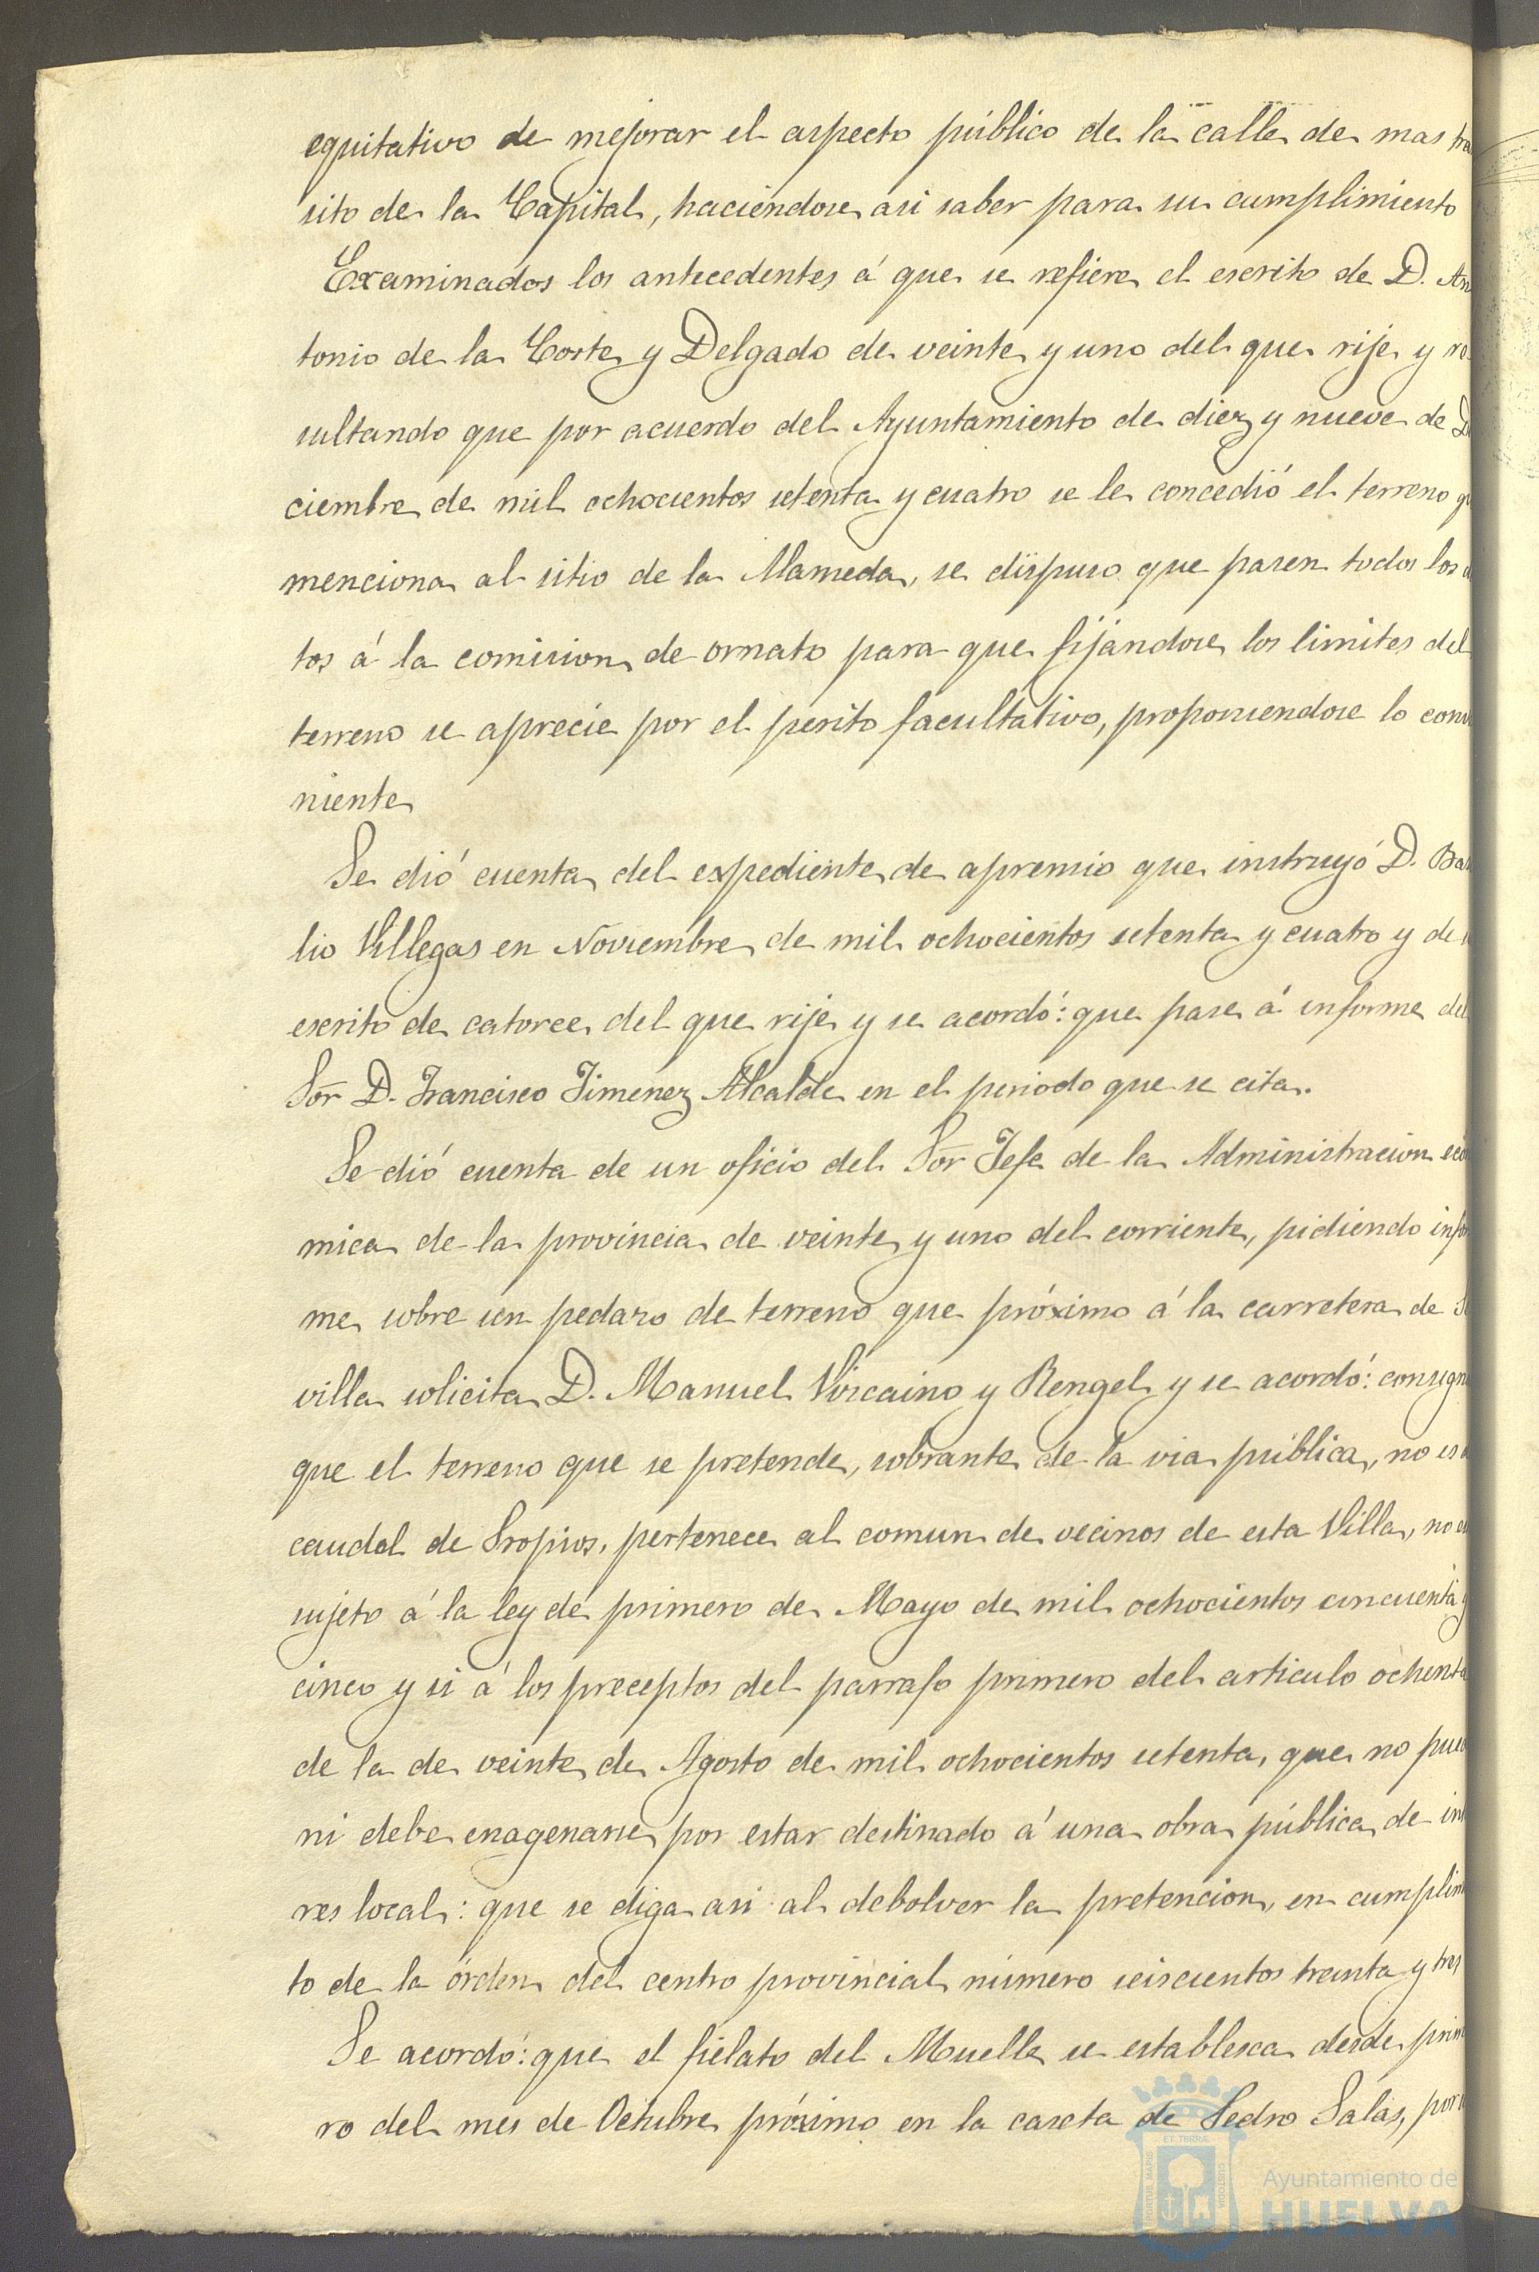 equitativo de mejorar el aspecto público de la calle de mas tra
sito de la Capital, haciendose asi saber para su cumplimiento
Examinados los antecedentes á que se refiere el escrito de D. An
tonio de la Corte y Delgado de veinte y uno del que rije y re
sultando que por acuerdo del Ayuntamiento de diez y nueve de Di
ciembre de mil ochocientos setenta y cuatro se le concedió el terreno q
menciona al sitio de la Alameda, se dispuso que pasen todos los
tos á la comision de ornato para que fijándose los limites del
terreno se aprecie por el perito facultativo, proponiendose lo conve
niente
Se dió cuenta del expediente de apremio que instruyó D. Basi
lio Villegas en Noviembre de mil ochocientos setenta y cuatro y de
escrito de catorce del que rije y se acordó: que pase á informe del
Sor D. Francisco Jimenez Alcalde en el periodo que se cita.
Se dió cuenta de un oficio del Sor Jefe de la Administracion eco
mica de la provincia de veinte y uno del corriente, pidiendo infor
me sobre un pedazo de terreno que próximo á la carretera de Se
villa solicita D. Manuel Viscaino y Rengel y se acordó: consign
que el terreno que se pretende, sobrante de la via pública, no es
caudal de Propios, pertenece al comun de vecinos de esta Villa, no es
sujeto á la ley de primero de Mayo de mil ochocientos cincuenta y
cinco y si á los preceptos del parrafo primero del articulo ochenta
de la de veinte de Agosto de mil ochocientos setenta, que no pue
ni debe enagenarse por estar destinado á una obra pública de int
res local: que se diga asi al debolver la pretencion, en cumplim
to de la órden del centro provincial número seiscientos treinta y tres
Se acordó: que el fielato del Muelle se establesca desde prim
ro del mes de Octubre próximo en la caseta de Pedro Salas, por
Ayuntamiento de
HUELVA